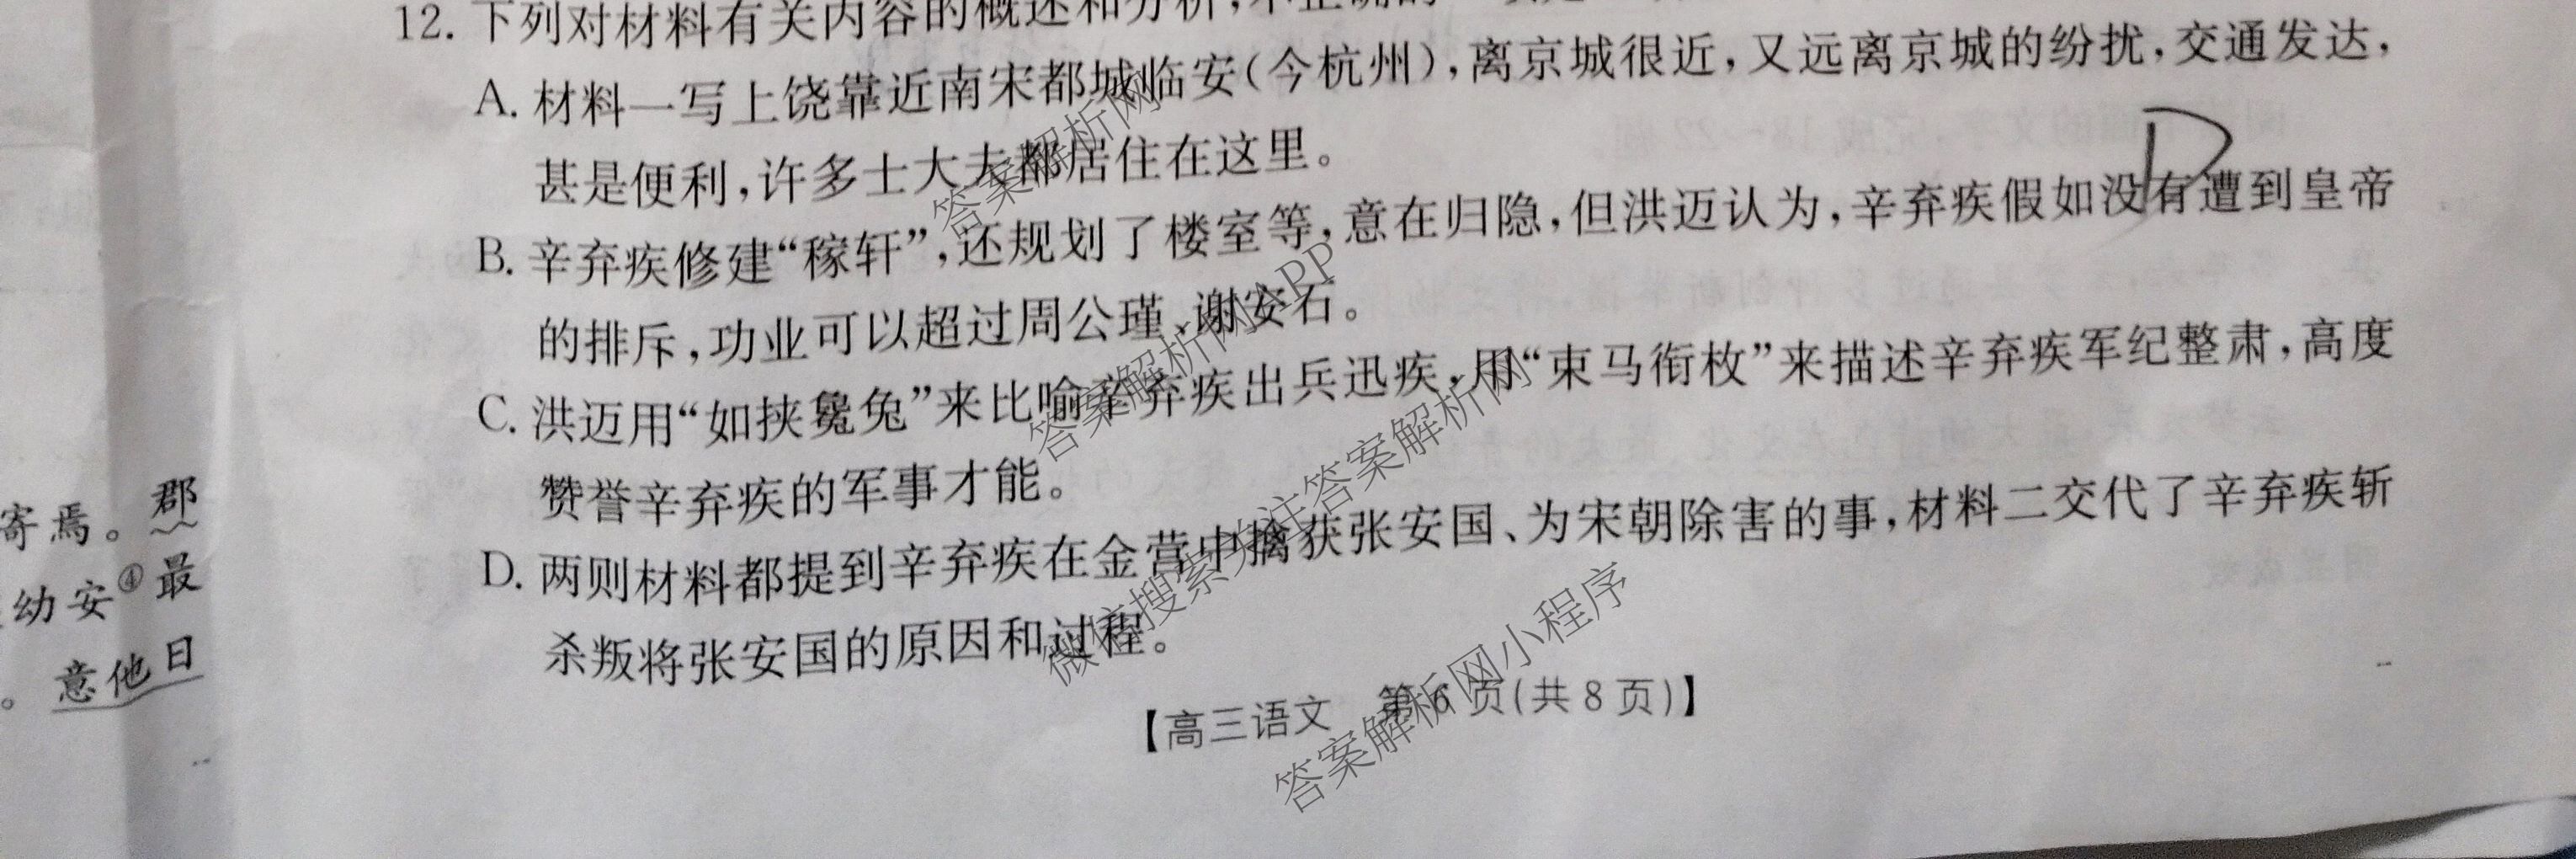 12. 下列对材料有关内容的概述和分析,不正确的一项是
A. 材料一写上饶靠近南宋都城临安(今杭州),离京城很近,又远离京城的纷扰,交通发达,
甚是便利,许多士大夫都居住在这里。
D
B. 辛弃疾修建“稼轩”,还规划了楼室等,意在归隐,但洪迈认为,辛弃疾假如没有遭到皇帝
的排斥,功业可以超过周公瑾、谢安石。
C. 洪迈用“如挟毚兔”来比喻辛弃疾出兵迅疾,用“束马衔枚”来描述辛弃疾军纪整肃,高度
赞誉辛弃疾的军事才能。
D. 两则材料都提到辛弃疾在金营中擒获张安国、为宋朝除害的事,材料二交代了辛弃疾斩
杀叛将张安国的原因和过程。
【高三语文 第6页(共8页)】
寄焉。郡
幼安④最
。意他日
答案解析网
答案解析网APP
微信搜索关注答案解析网
答案解析网小程序